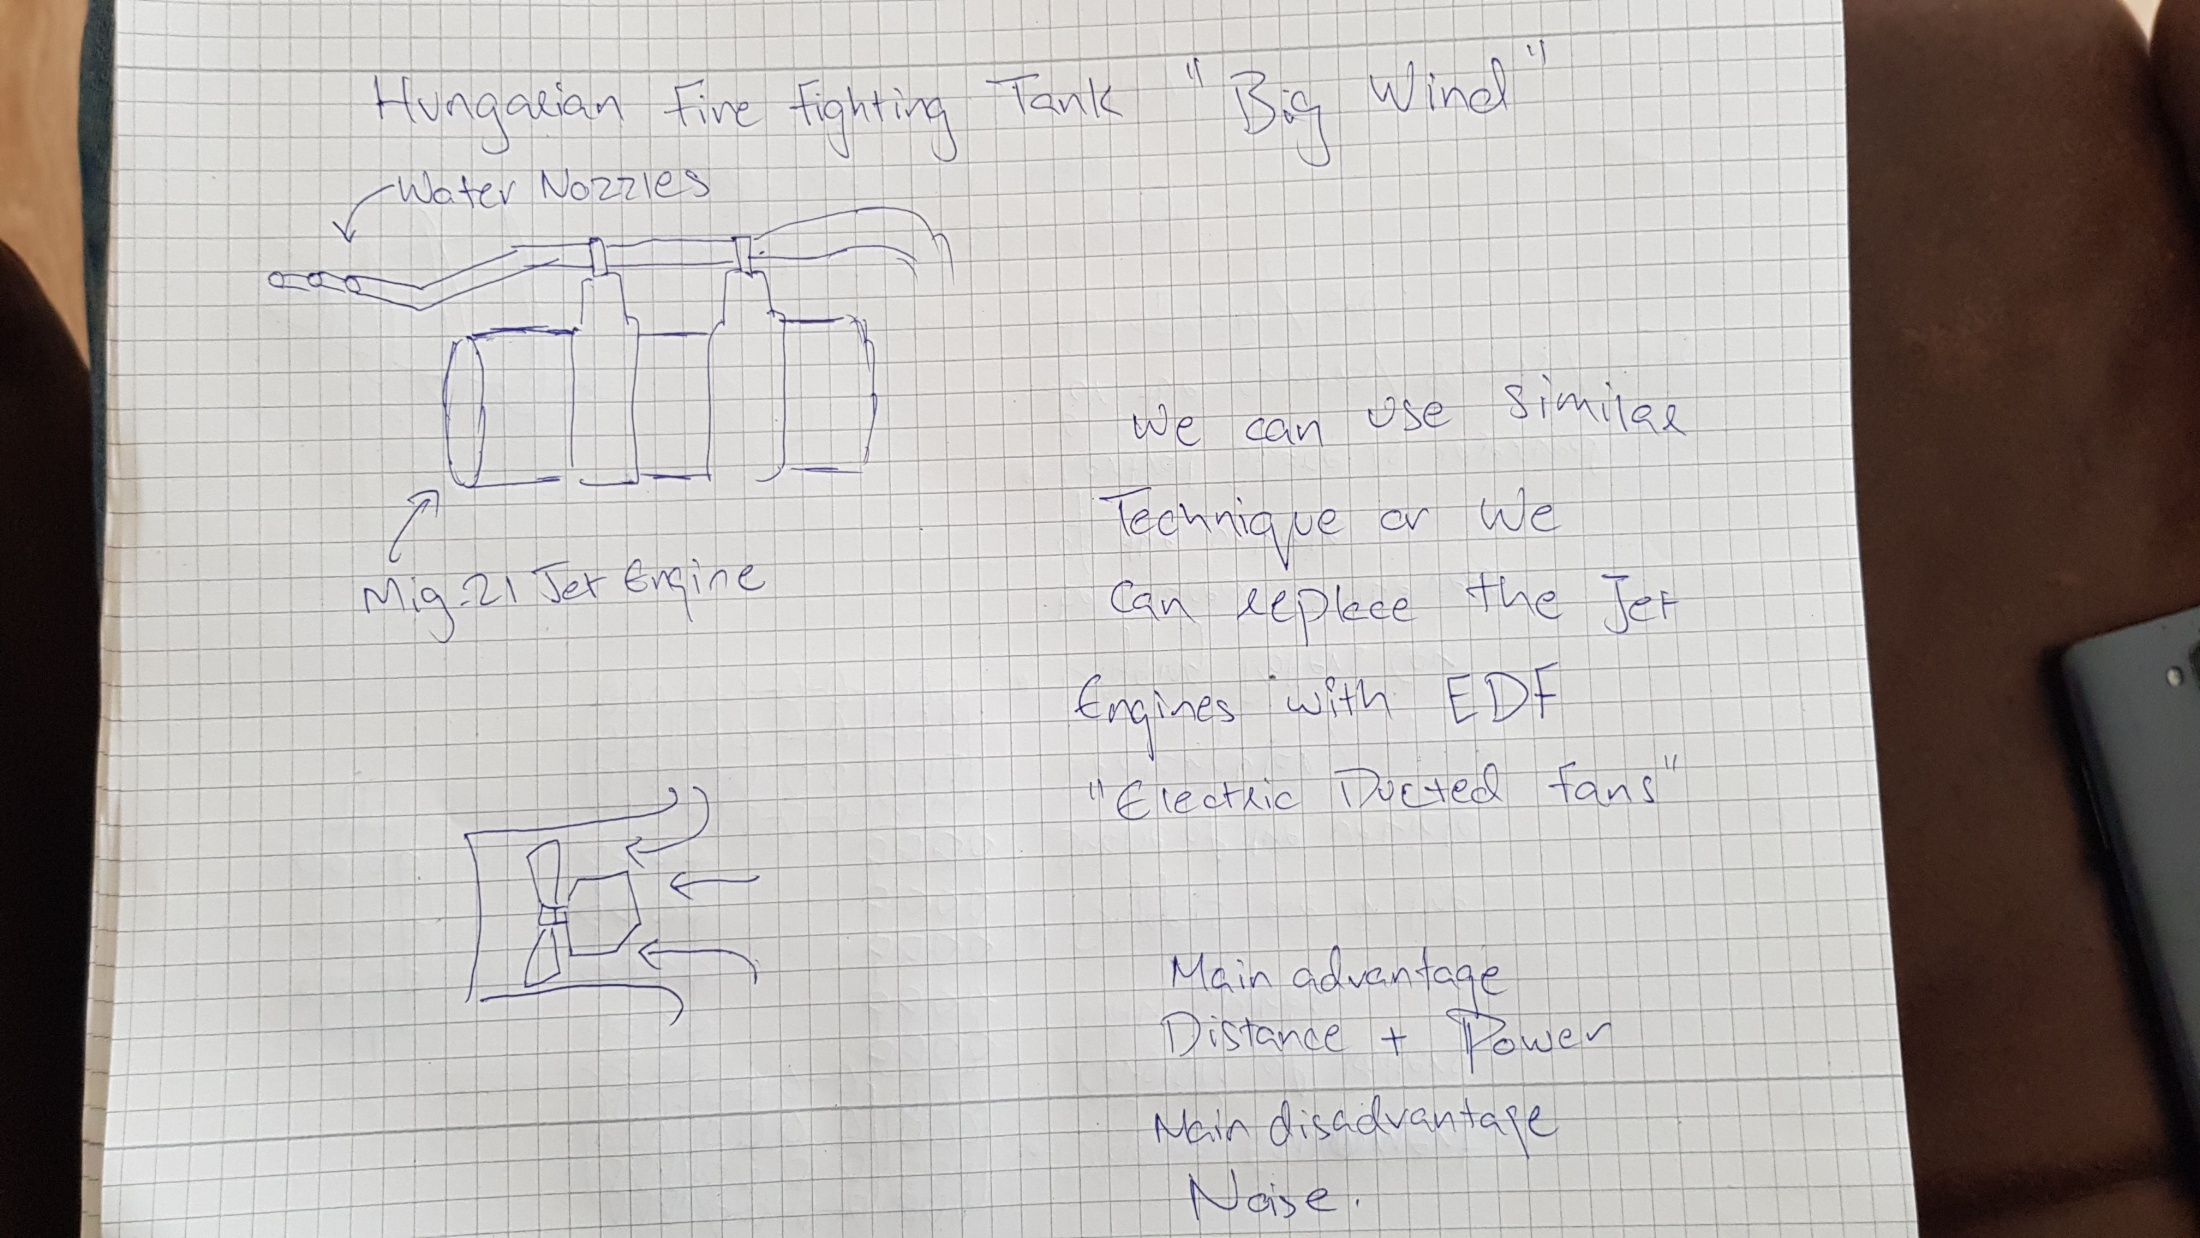 Hungarian Fire fighting Tank "Big Wind"
Water Nozzles
Mig-21 Jet Engine
We can use similar
Technique or We
Can replace the Jet
Engines with EDF
"Electric Ducted fans"
Main advantage
Distance + Power
Main disadvantage
Noise.